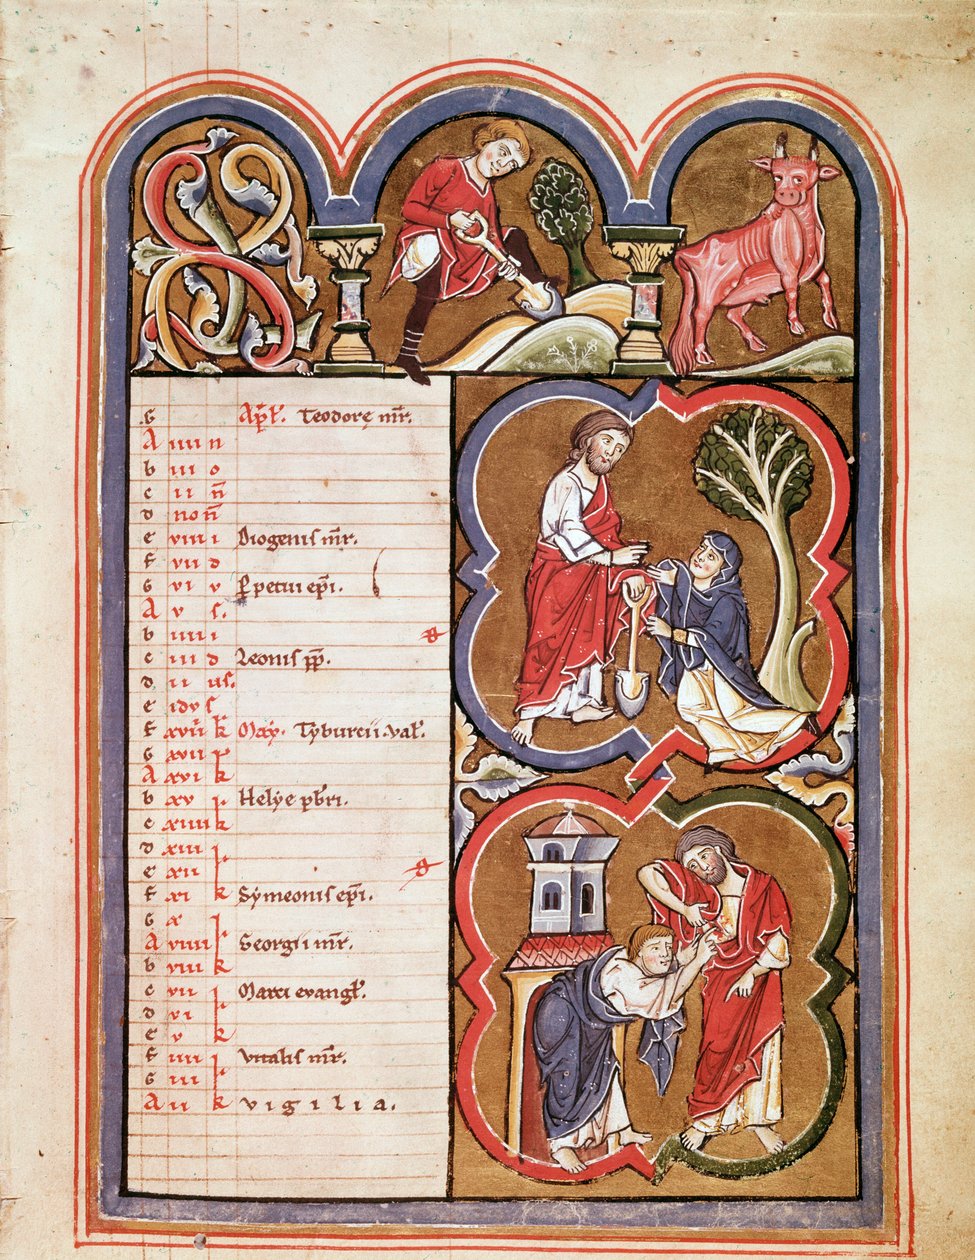 .G Ap̄l'. Teodorę m̄r.
A iiii n
b iii o
c ii n̄
d no n̄
e viii i Diogenis m̄r.
f vii d
G vi v Ꝑpetui ep̄i.
A v s.
b iiii i
c iii d Leonis p̄p.
d ii us.
e idvs
f xviii k May. Tyburcii. Val'.
G xvii l
A xvi k
b xv l Helye p̄bri.
c xiiii k
d xiii l
e xii
f xi k Symeonis ep̄i.
G x l
A viiii Georgii m̄r.
b viii k
c vii l Marci evangl'.
d vi
e v k
f iiii l Vitalis m̄r.
G iii
A ii k vigilia.